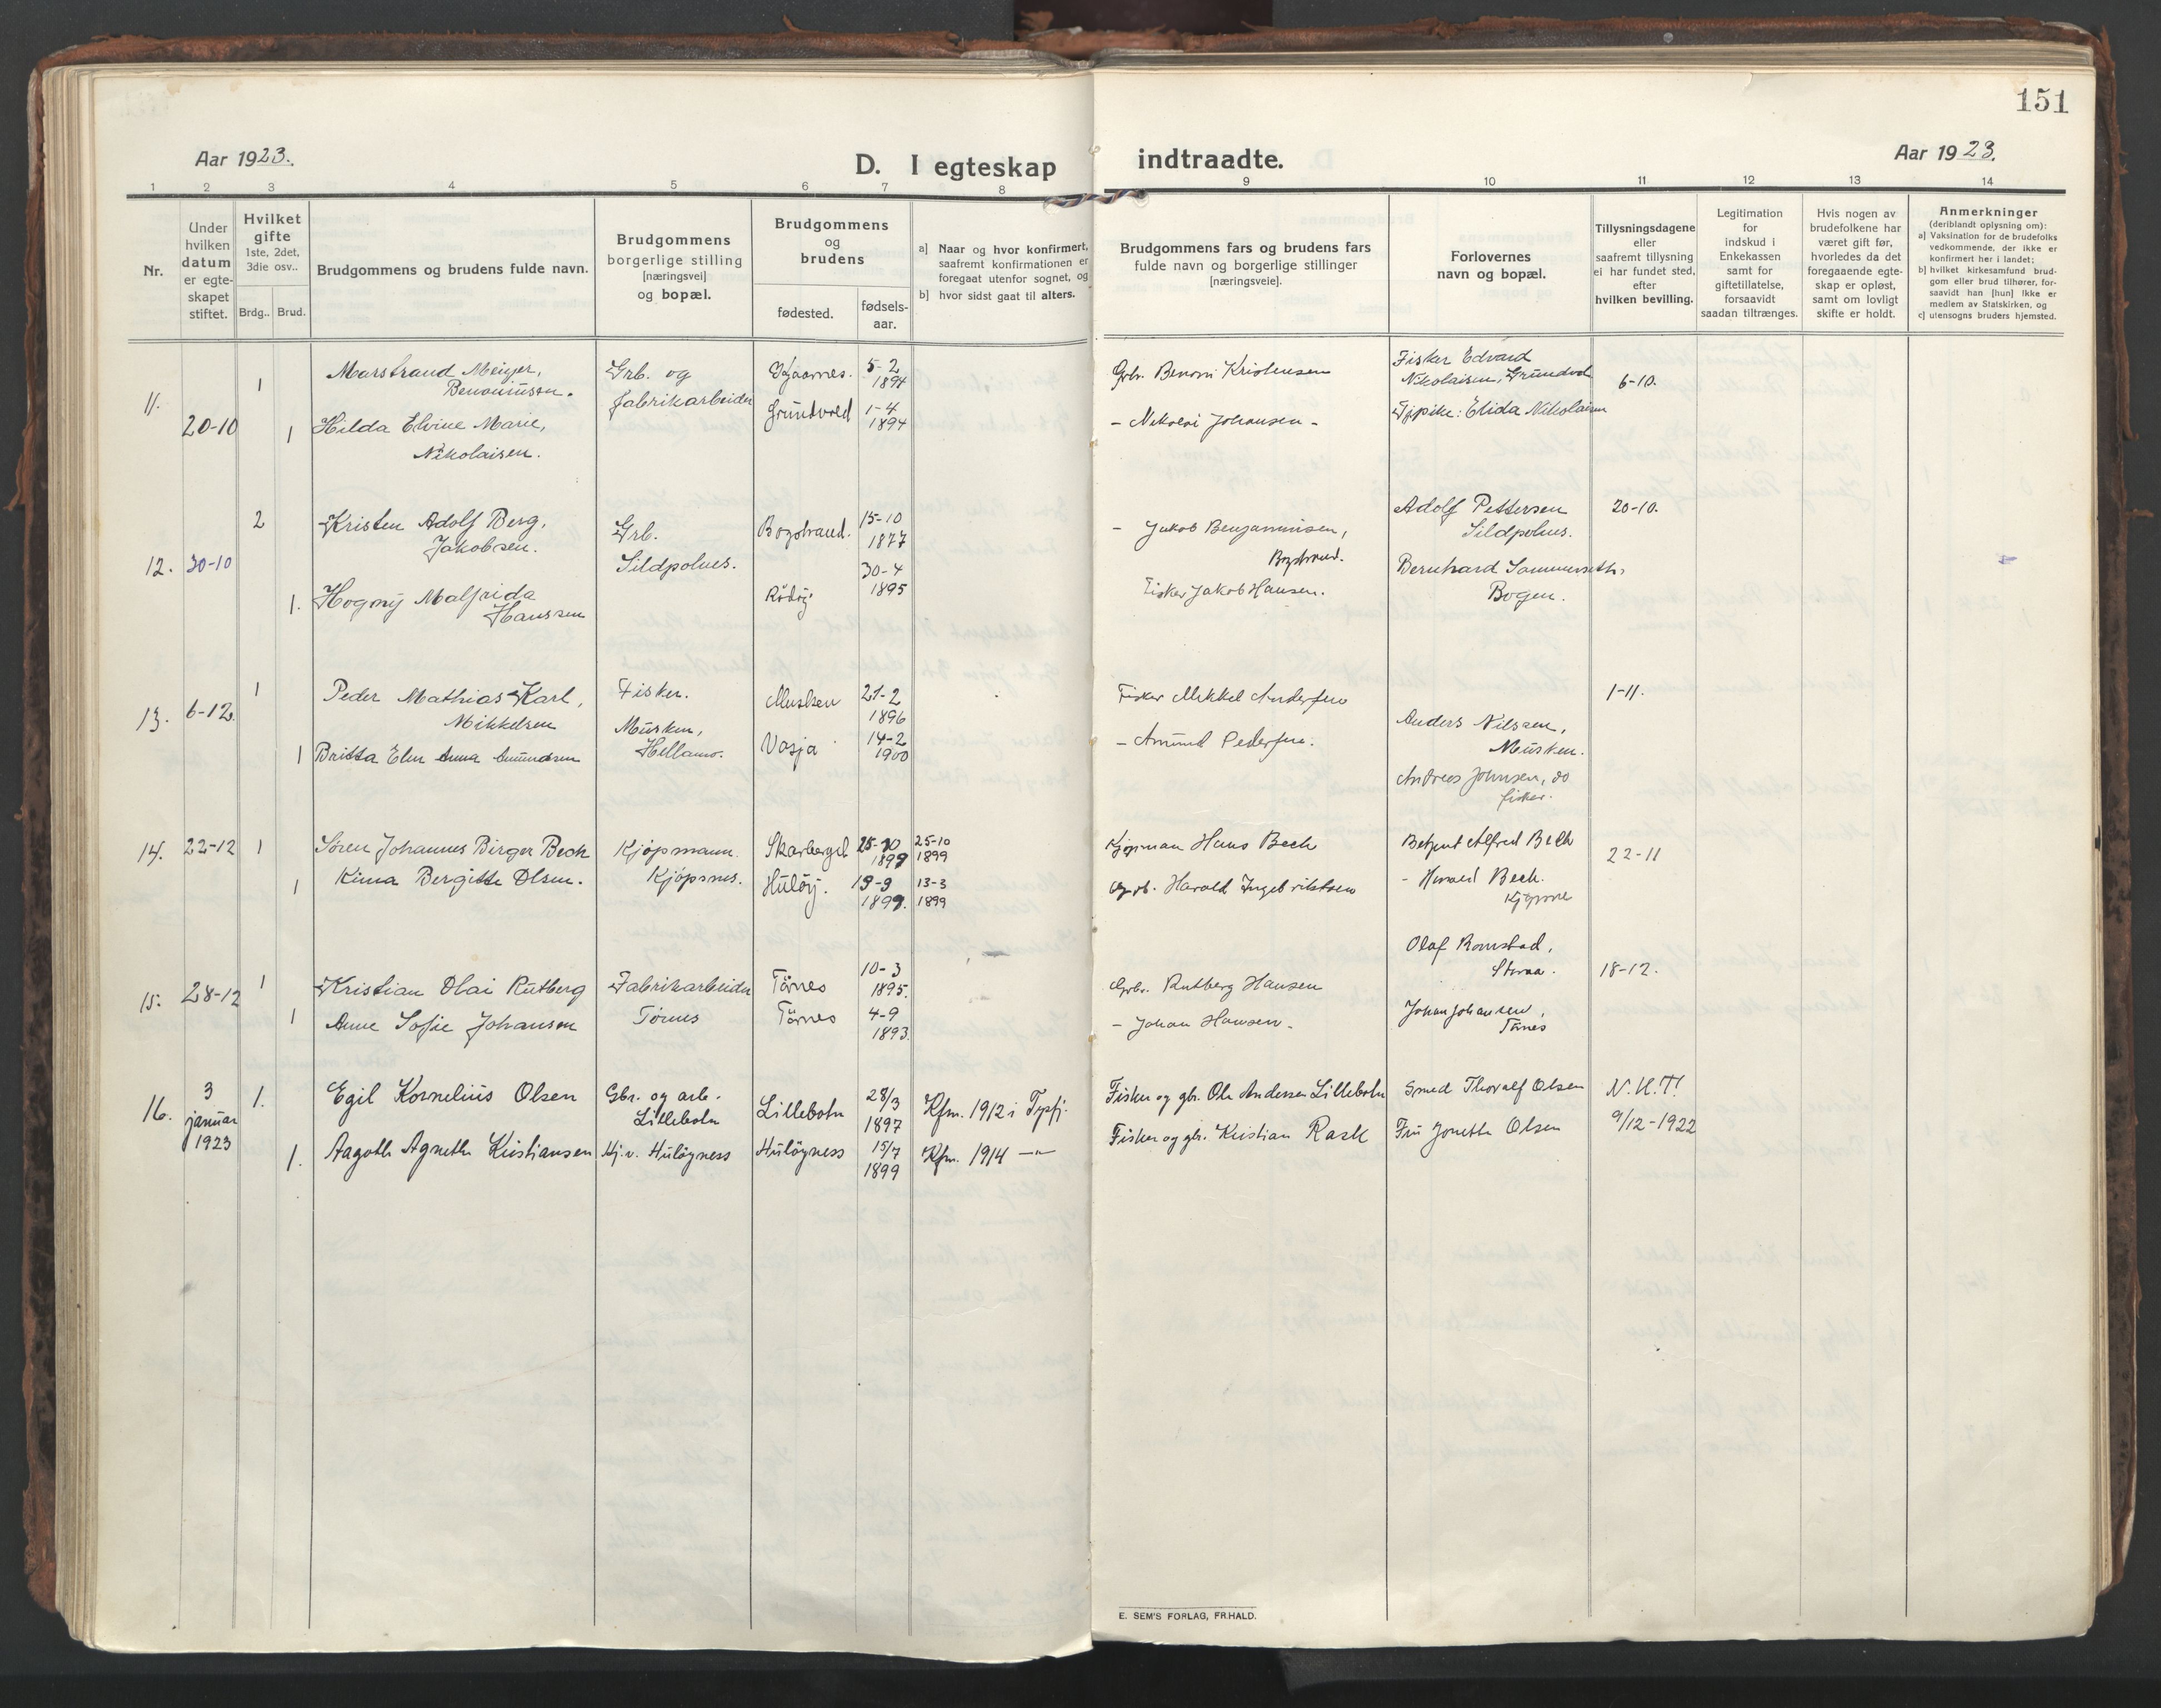 151
Aar 1923.
D. I egteskap indtraadte.
Aar 1923.
1 2 3 4 5 6 7 8 9 10 11 12 13 14
Nr.
Under
hvilken
datum
er egte-
skapet
stiftet.
Hvilket
gifte
1ste, 2det,
3die osv..
Brdg.. Brud.
Brudgommens og brudens fulde navn.
Brudgommens
borgerlige stilling
[næringsvei]
og bopæl.
Brudgommens
og
brudens
fødested.
fødsels-
aar.
a] Naar og hvor konfirmert,
saafremt konfirmationen er
foregaat utenfor sognet, og
b] hvor sidst gaat til alters.
Brudgommens fars og brudens fars
fulde navn og borgerlige stillinger
[næringsveie].
Forlovernes
navn og bopæl.
Tillysningsdagene
eller
saafremt tillysning
ei har fundet sted,
efter
hvilken bevilling.
Legitimation
for
indskud i
Enkekassen
samt for
giftetillatelse,
forsaavidt
saadan tiltrænges.
Hvis nogen av
brudefolkene har
været gift før,
hvorledes da det
foregaaende egte-
skap er opløst,
samt om lovligt
skifte er holdt.
Anmerkninger
(deriblandt oplysning om):
a] Vaksination for de brudefolks
vedkommende, der ikke er
konfirmert her i landet;
b] hvilket kirkesamfund brud-
gom eller brud tilhører, for-
saavidt han [hun] ikke er
medlem av Statskirken, og
c] utensogns bruders hjemsted.
11.
20-10
1
Marstrand Meijer,
Benoniussen.
Grb. og
fabrikarbeider
5-2
1894
Grb. Benoni Kristensen
Fisker Edvard
Nikolaisen, Grundvol
6-10.
1
Hilda Elvine Marie,
Nikolaisen.
Grundvold
1-4
1894
- Nikolai Johansen -
Tjpike: Elida Nikolaisen
12.
30-10
2
Kristen Adolf Berg,
Jakobsen.
Grb.
Sildpolnes.
Bogstrand.
15-10
1877
- Jakob Benjaminsen,
Bogstrand.
Adolf Pettersen
Sildpolnes.
20-10.
1.
Hogny Malfrida
Hanssen
Rödöy
30-4
1895
Fisker Jakob Hansen.
Bernhard Sommerseth,
Bogen.
13.
6-12.
1
Peder Mathias Karl,
Mikkelsen
Fisker.
Musken,
Hellamo.
Musken
21-2
1896
Fisker Mikkel Andersen
Anders Nilssen,
Musken.
1-11.
1
Britta Elen Anna Amundsen
Vasja
14-2
1900
- Amund Pedersen.
Andreas Johnsen, do
fisker.
14.
22-12
1
Søren Johannes Birger Bech
Kjöpmann.
Kjöpsnes.
Skarberget
25-10
1899
25-10
1899
Kjøpman Hans Bech
Alfred Bech
22-11
1
Kima Bergitte Olsen.
Hulöy.
13-3
1899
Harald Ingebriktsen
- Harald Bech.
15.
28-12
1
Kristian Olai Rutberg
Fabrikarbeider
Tørnes
Törnes
10-3
1895.
Grbr. Rutberg Hansen
Olaf Romstad,
Storaa.
18-12.
1
Anne Sofie Johansen
Törnes
4-9
1893.
- Johan Hansen -
Johan Johansen,
Törnes
16.
3
januar
1923
1.
Egil Kornelius Olsen
Gbr. og arb.
Lillebotn
Lillebotn
28/3
1897
Kfm. 1912 i Tysfj.
Fisker og gbr. Ole Andersen Lillebotn
Smed Thoralf Olsen
N.K.T!
9/12-1922
1.
Aagoth Agneth Kristiansen
Hj.v. Hulöyness
Hulöyness
15/7
1899
Kfm. 1914 -"-
Fisker og gbr. Kristian Rask
Fru Jonetta Olsen
E. SEM'S FORLAG, FR.HALD.